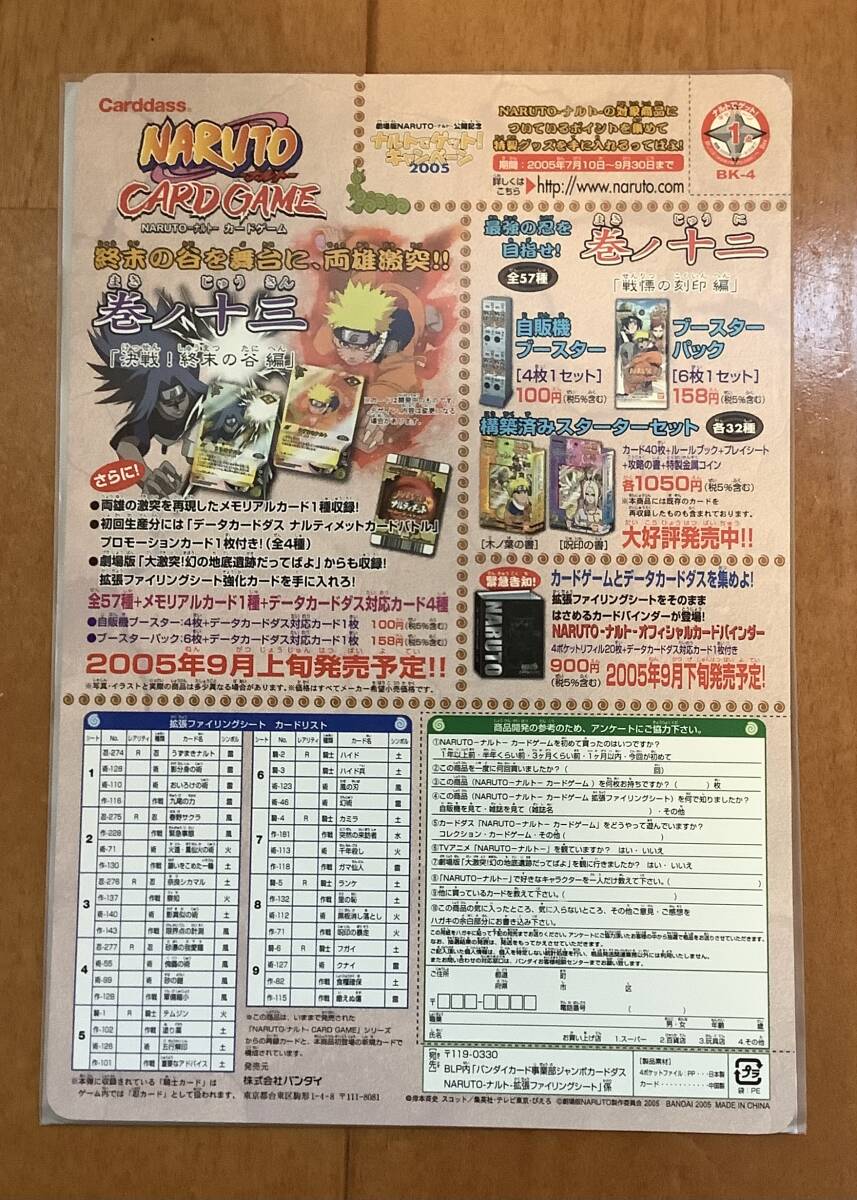 Carddass®
NARUTO
-ナルト-
CARD GAME
NARUTO-ナルト- カードゲーム
劇場版NARUTO-ナルト-公開記念
ナルトでゲット!
キャンペーン
2005
NARUTO-ナルト-の対象商品に
ついているポイントを集めて
特製グッズを手に入れるってばよ!
期間：2005年7月10日～9月30日まで
詳しくは
こちら
http://www.naruto.com
ナルトでゲット!
1
BK-4
終末の谷を舞台に、両雄激突!!
巻ノ十三
「決戦！終末の谷編」
※カードは開発中のものです。
さらに!
●両雄の激突を再現したメモリアルカード1種収録!
●初回生産分には「データカードダス ナルティメットカードバトル」
プロモーションカード1枚付き!(全4種)
●劇場版「大激突!幻の地底遺跡だってばよ」からも収録!
拡張ファイリングシート強化カードを手に入れろ!
全57種+メモリアルカード1種+データカードダス対応カード4種
●自販機ブースター:4枚+データカードダス対応カード1枚 100円(税5%含む)
●ブースターパック:6枚+データカードダス対応カード1枚 158円(税5%含む)
2005年9月上旬発売予定!!
※写真・イラストと実際の商品は多少異なる場合があります。※価格はすべてメーカー希望小売価格です。
最強の忍を
目指せ!
巻ノ十二
全57種
「戦慄の刻印編」
自販機
ブースター
[4枚1セット]
100円(税5%含む)
ブースター
パック
[6枚1セット]
158円(税5%含む)
構築済みスターターセット
各32種
カード40枚+ルールブック+プレイシート
+攻略の書+特製金属コイン
各1050円(税5%含む)
※本商品には既存のカードを
再収録したものも含まれております。
[木ノ葉の書]
[呪印の書]
大好評発売中!!
緊急告知!
カードゲームとデータカードダスを集めよ!
拡張ファイリングシートをそのまま
はさめるカードバインダーが登場!
NARUTO-ナルト-オフィシャルカードバインダー
4ポケットリフィル20枚+データカードダス対応カード1枚付き
900円
(税5%含む)
2005年9月下旬発売予定!
NARUTO
拡張ファイリングシート カードリスト
シート No. レアリティ 種類 カード名 シンボル
1
忍-274 R 忍 うずまきナルト 雷
術-128 術 影分身の術 雷
術-110 術 おいろけの術 雷
作-116 作戦 九尾の力 雷
2
忍-275 R 忍 春野サクラ 風
作-228 作戦 緊急事態 風
術-71 術 火遁・鳳仙火の術 火
作-130 作戦 願いをこめた一種 土
3
忍-276 R 忍 奈良シカマル 土
作-137 作戦 察知 火
術-140 術 影真似の術 土
作-143 作戦 限界点の計測 風
4
忍-277 R 忍 砂瀑の我愛羅 風
術-55 術 傀儡の術 風
術-99 術 砂の鎧 風
作-128 作戦 軍備縮小 風
5
騎-1 R 騎士 テムジン 火
作-102 作戦 塗り薬 土
術-126 術 五行解印 土
作-101 作戦 重要なアドバイス 土
シート No. レアリティ 種類 カード名 シンボル
6
騎-2 R 騎士 ハイド 土
騎-3 騎士 ハイド兵 土
術-123 術 風の刃 風
術-46 術 幻術 雷
7
騎-4 R 騎士 カミラ 土
作-181 作戦 突然の来訪者 水
術-113 術 千年殺し 火
作-118 作戦 ガマ仙人 雷
8
騎-5 R 騎士 ランケ 土
作-132 作戦 里の恥 土
術-112 術 黒板消し落とし 火
作-71 作戦 呪印の暴走 火
9
騎-6 R 騎士 フガイ 土
術-127 術 クナイ 雷
作-82 作戦 食糧確保 土
作-115 作戦 癒えぬ傷 雷
※本弾に収録されている「騎士カード」は
ゲーム内では「忍カード」として扱われます。
※この商品は、いままで発売された
「NARUTO-ナルト- CARD GAME」シリーズ
からの再録カードと、本商品初登場の新規カードで
構成されています。
発売元
株式会社バンダイ
東京都台東区駒形1-4-8 〒111-8081
商品開発の参考のため、アンケートにご協力下さい。
①NARUTO-ナルト- カードゲームを初めて買ったのはいつですか?
1年以上前・半年くらい前・3ヶ月くらい前・1ヶ月以内・今回が初めて
②この商品を一度に何回買いましたか? ( 回)
③この商品(NARUTO-ナルト- カードゲーム)を何枚お持ちですか? ( )枚
④この商品(NARUTO-ナルト- カードゲーム 拡張ファイリングシート)を何で知りましたか?
自販機を見て・雑誌を見て(雑誌名 )・その他
⑤カードダス「NARUTO-ナルト- カードゲーム」をどうやって遊んでいますか?
コレクション・カードゲーム・その他( )
⑥TVアニメ「NARUTO-ナルト-」を観ていますか? はい・いいえ
⑦劇場版「大激突!幻の地底遺跡だってばよ」を観に行きましたか? はい・いいえ
⑧「NARUTO-ナルト-」で好きなキャラクターを一人だけ教えて下さい。( )
⑨他に買っているカードを教えて下さい。( )
⑩この商品の気に入ったところ、気に入らないところ、その他ご意見・ご感想を
ハガキの余白部分にお書き込み下さい。
ご住所 都道府県 市 町 区
〒
電話番号 ( )
職業 男・女 年齢 歳
氏名 お買い上げ店 1.スーパー 2.百貨店 3.玩具店 4.その他
宛先
〒119-0330
BLP内「バンダイカード事業部ジャンボカードダス
NARUTO-ナルト-拡張ファイリングシート」係
【製品素材】
4ポケットファイル：PP・・・日本製
カード・・・・・・中国製
プラ
袋：PE
©岸本斉史 スコット／集英社・テレビ東京・ぴえろ ©劇場版NARUTO製作委員会 2005 ・BANDAI 2005 MADE IN CHINA